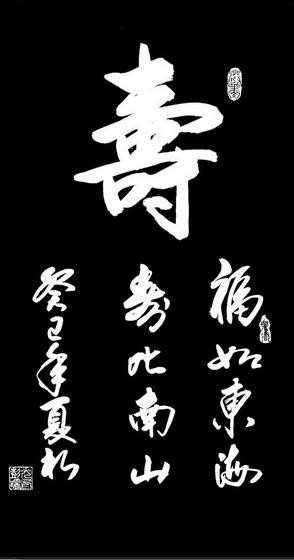 壽
福如東海
壽比南山
癸巳年夏於